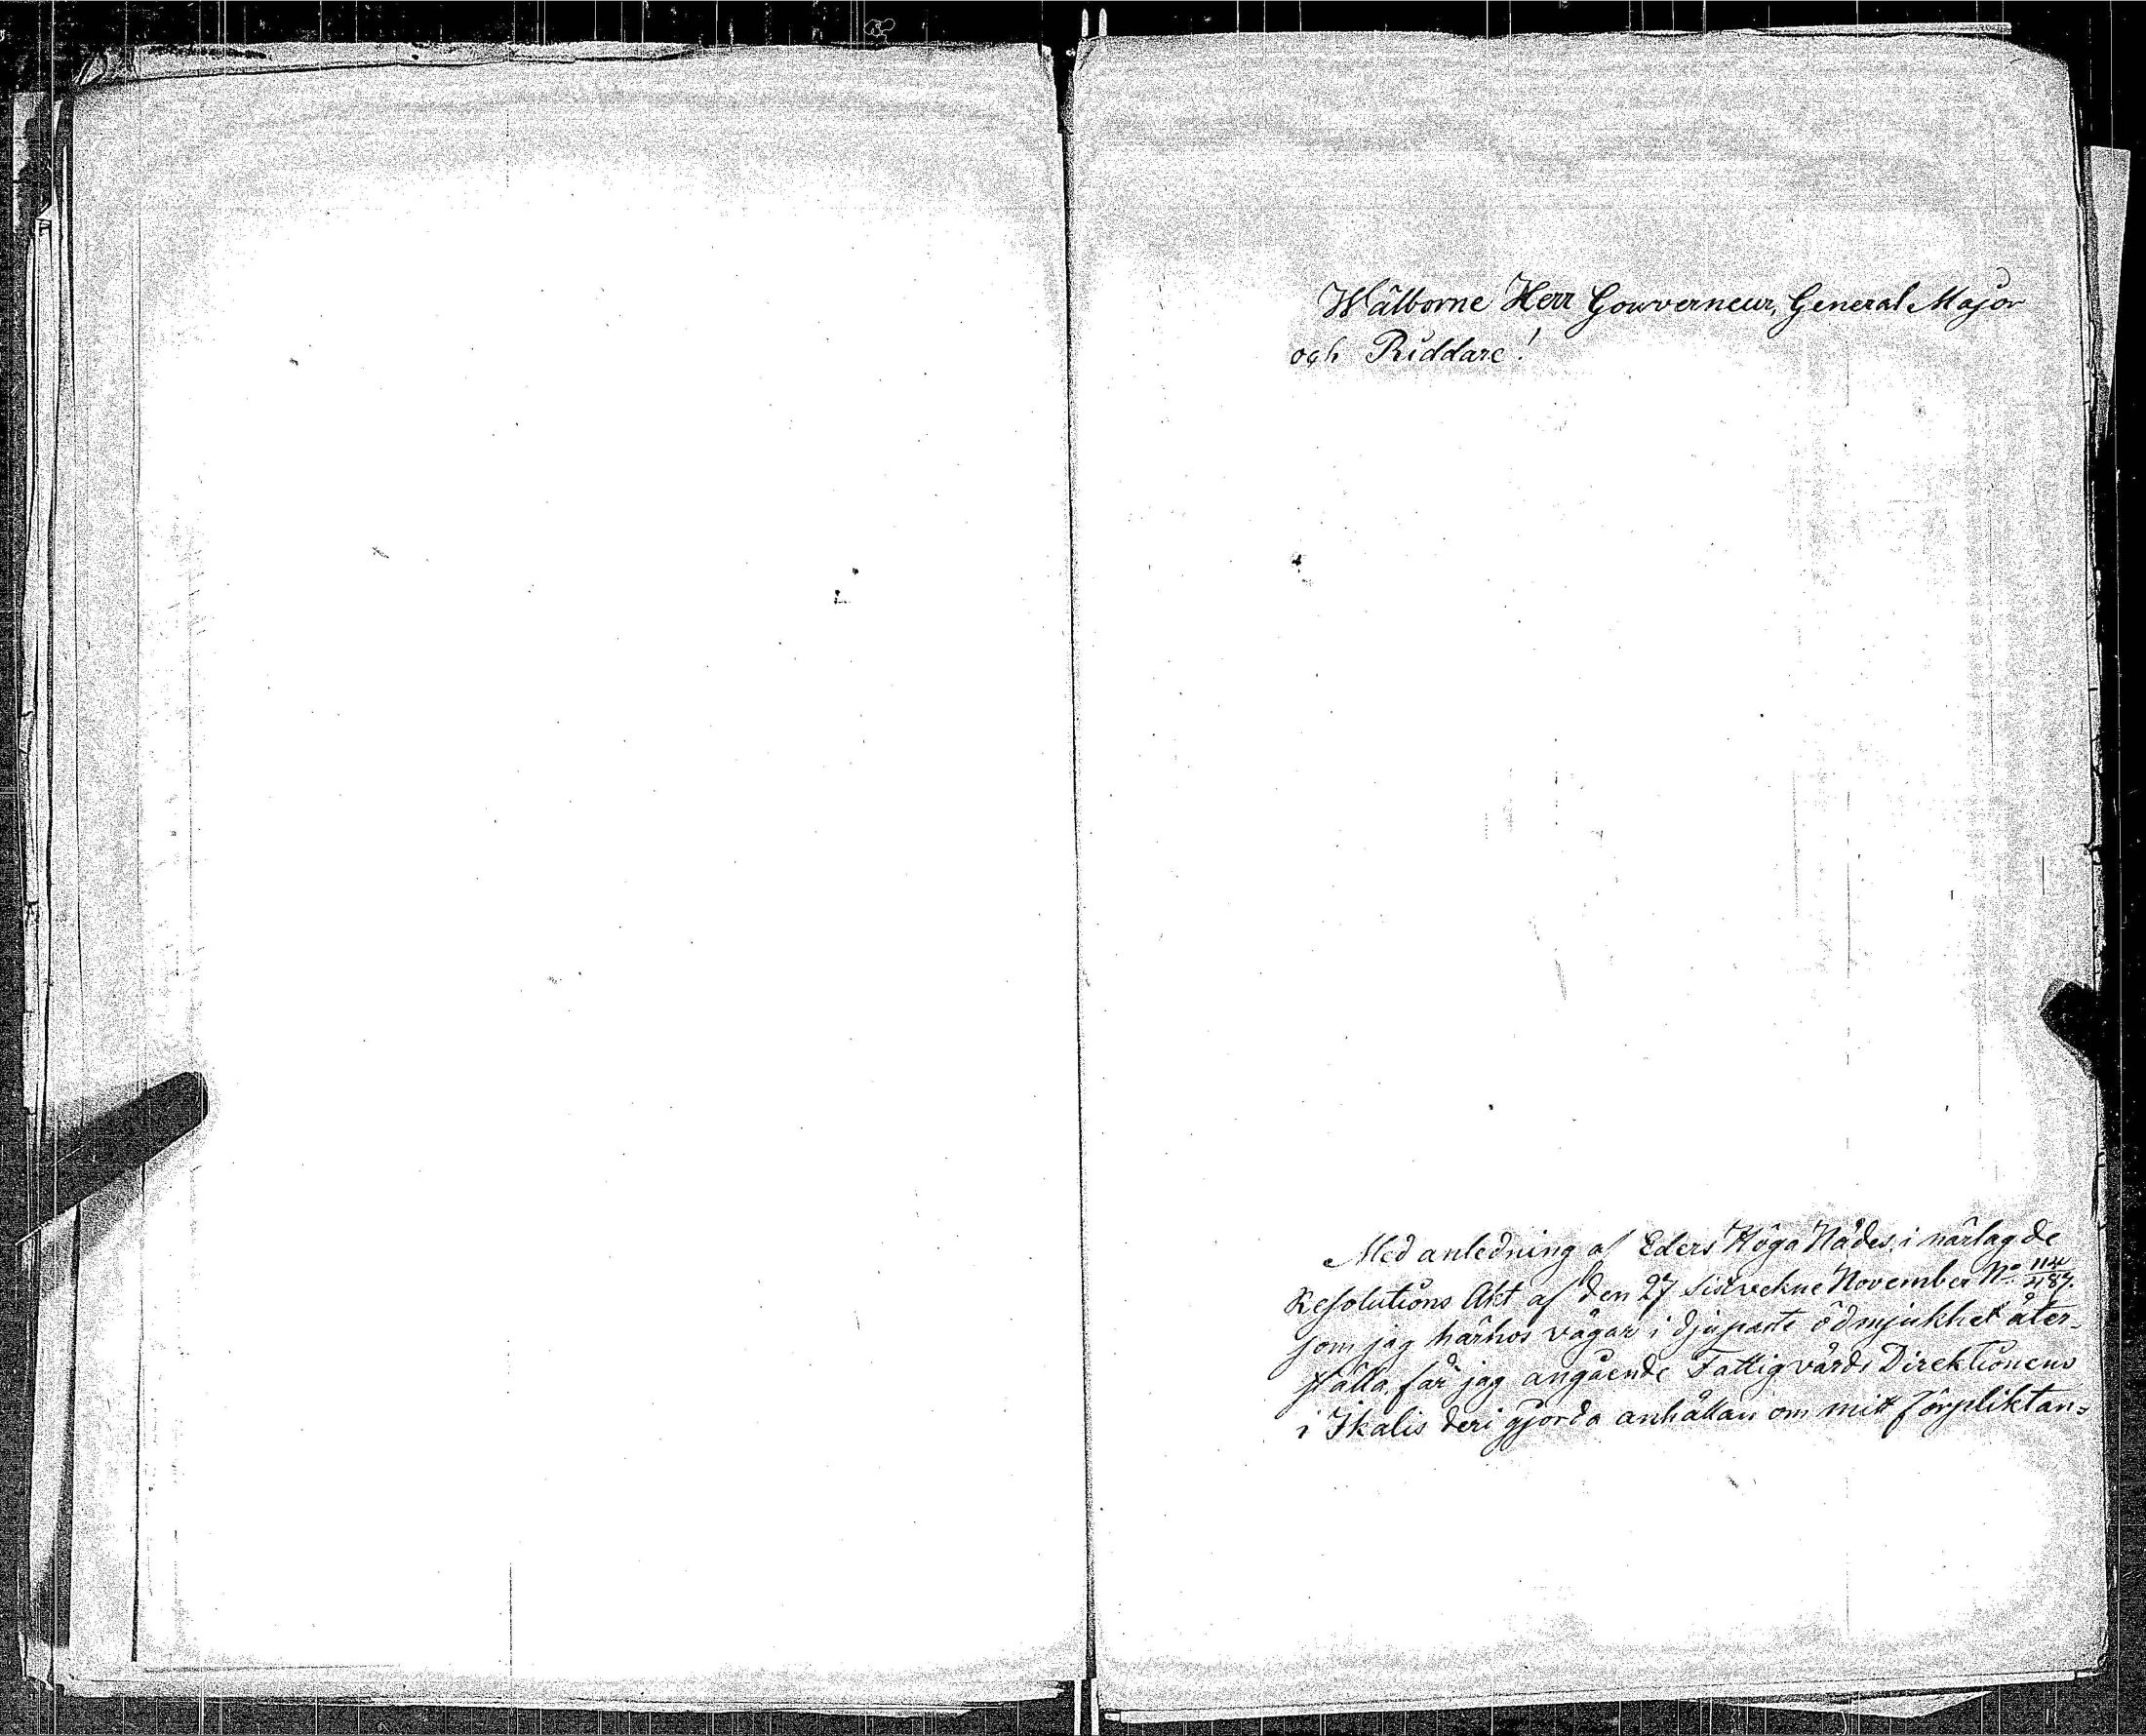 Wälborne Herr Gouverneur, General Major
och Riddare!
Med anledning af Eders Höga Nådes, i närlagde
Resolutions Akt af den 27 sistvekne November No 114/487.
som jag härhos vågar i djupaste ödmjukhet åter-
ställa, får jag angående Fattigvårds Direktionens
i Ikalis deri gjorda anhållan om mitt förpliktan-